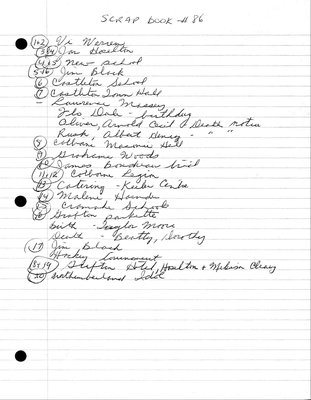 SCRAP BOOK - # 86
1+2 Vi Warren
3+4 Jim Hoselton
4+5 New School
5+6 Jim Black
6 Castleton School
7 Castleton Town Hall
- Laurence Massey
Flo Dale - birthday
Oliver, Arnold Cecil - Death notice
Rusk, Albert Henry - " "
8 Colborne Masonic Hall
9 Grahame Woods
10 James Bondreau trial
11+12 Colborne Legion
13 Catering - Keeler Centre
14 Malene
15 Cramahe Schools
16 Grafton parkette
birth - Taylor Moore
Death - Beatty, Dorothy
17 Jim Black
Hockey Tournament
18+19 Grafton Hotel, Hoselton + Melissa Cleary
20 Northumberland Idol